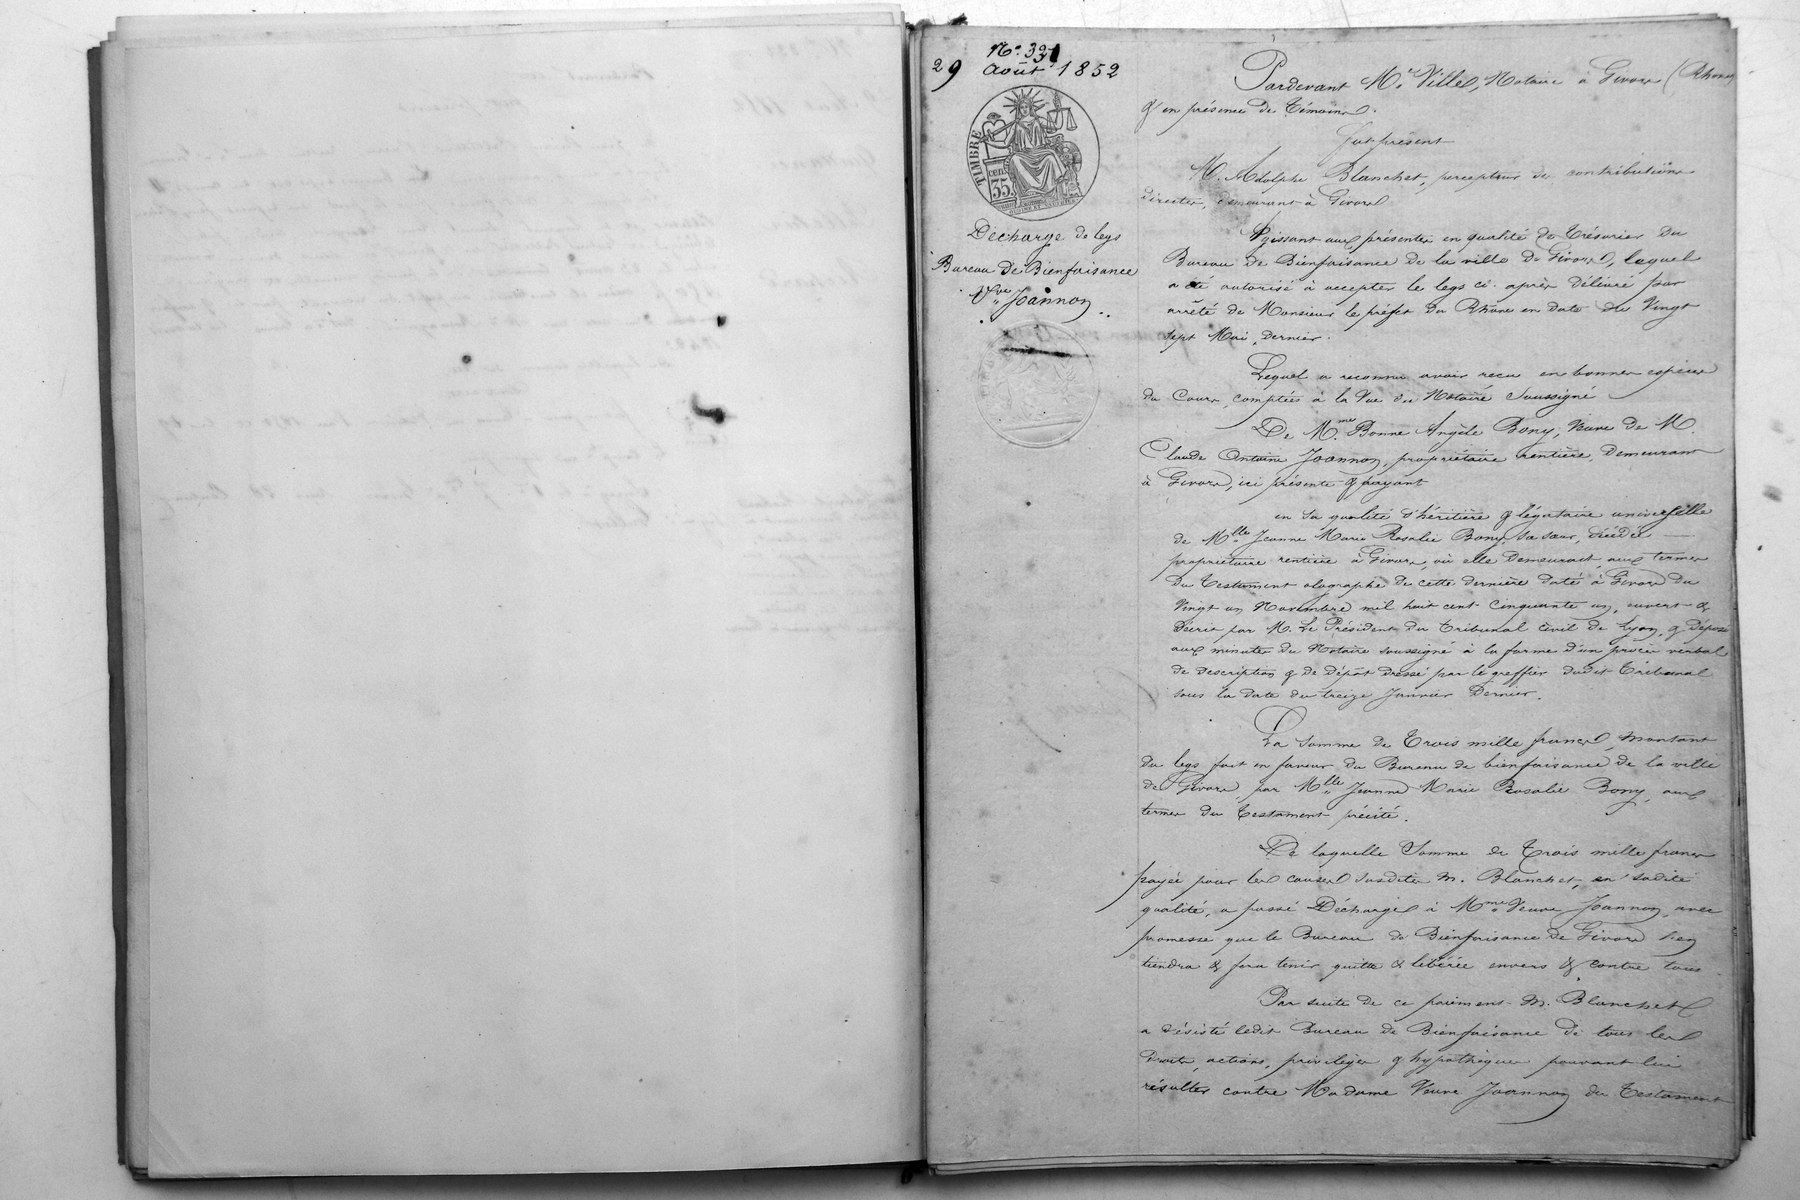 N.º 331
29 août 1852
TIMBRE
35
Décharge de legs
Bureau de Bienfaisance
Vve Joannon
Pardevant Me. Ville, Notaire à Givors (Rhône)
& en présence de témoins.
fut présent
M. Adolphe Blanchet, percepteur de contributions
directes, demeurant à Givors
Agissant aux présentes en qualité de Trésorier du
Bureau de Bienfaisance de la ville de Givors, lequel
a été autorisé à accepter le legs ci-après délivré par
arrêté de Monsieur le préfet du Rhône en date du Vingt
sept Mai, dernier.
Lequel a reconnu avoir reçu en bonnes espèces
du Cours, comptées à la Vue du Notaire Soussigné
De Mme Bonne Angèle Bony, Veuve de M.
Claude Antoine Joannon, propriétaire rentière, demeurant
à Givors, ici présente & payant
en sa qualité d'héritière & légataire universelle
de Mlle Jeanne Marie Rosalie Bony, sa sœur, décédée
propriétaire rentière à Givors, où elle demeurait, aux termes
du Testament olographe de cette dernière daté à Givors du
Vingt un Novembre mil huit cent cinquante un, ouvert &
décrit par M. Le Président du Tribunal civil de Lyon, & déposé
aux minutes du Notaire soussigné à la forme d'un procès verbal
de description & de dépôt dressé par le greffier dudit Tribunal
sous la date du treize Janvier Dernier.
La Somme de Trois mille francs, montant
du legs fait en faveur du Bureau de bienfaisance de la ville
de Givors, par Mlle Jeanne Marie Rosalie Bony, aux
termes du testament précité.
De laquelle Somme de Trois mille francs
payée pour les causes susdites M. Blanchet, en sadite
qualité, a passé Décharge à Mme Veuve Joannon, avec
promesse que le Bureau de Bienfaisance de Givors l'en
tiendra & fera tenir quitte & libérée envers & contre tous
Par suite de ce paiement M. Blanchet
a désisté ledit Bureau de Bienfaisance de tous les
droits, actions, privilèges & hypothèques pouvant lui
résulter contre Madame Veuve Joannon du Testament